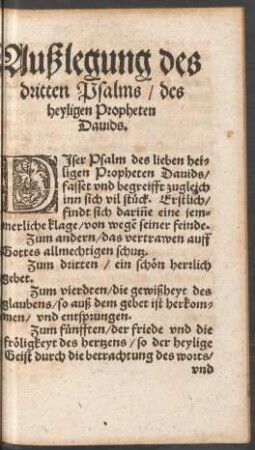 Außlegung des
dritten Psalms / des
heyligen Propheten
Dauids.
DIser Psalm des lieben hei-
ligen Propheten Dauids/
fasset vnd begreifft zugleich
inn sich vil stück. Erstlich/
findt sich dariñe eine jem-
merliche klage/von wegẽ seiner feinde.
Zum andern/das vertrawen auff
Gottes allmechtigen schutz.
Zum dritten / ein schön hertlich
gebet.
Zum vierdten/die gewißheyt des
glaubens/so auß dem gebet ist herkom-
men/ vnd entsprungen.
Zum fünfften/der friede vnd die
fröligkeyt des hertzens/ so der heylige
Geist durch die betrachtung des worts/
vnd